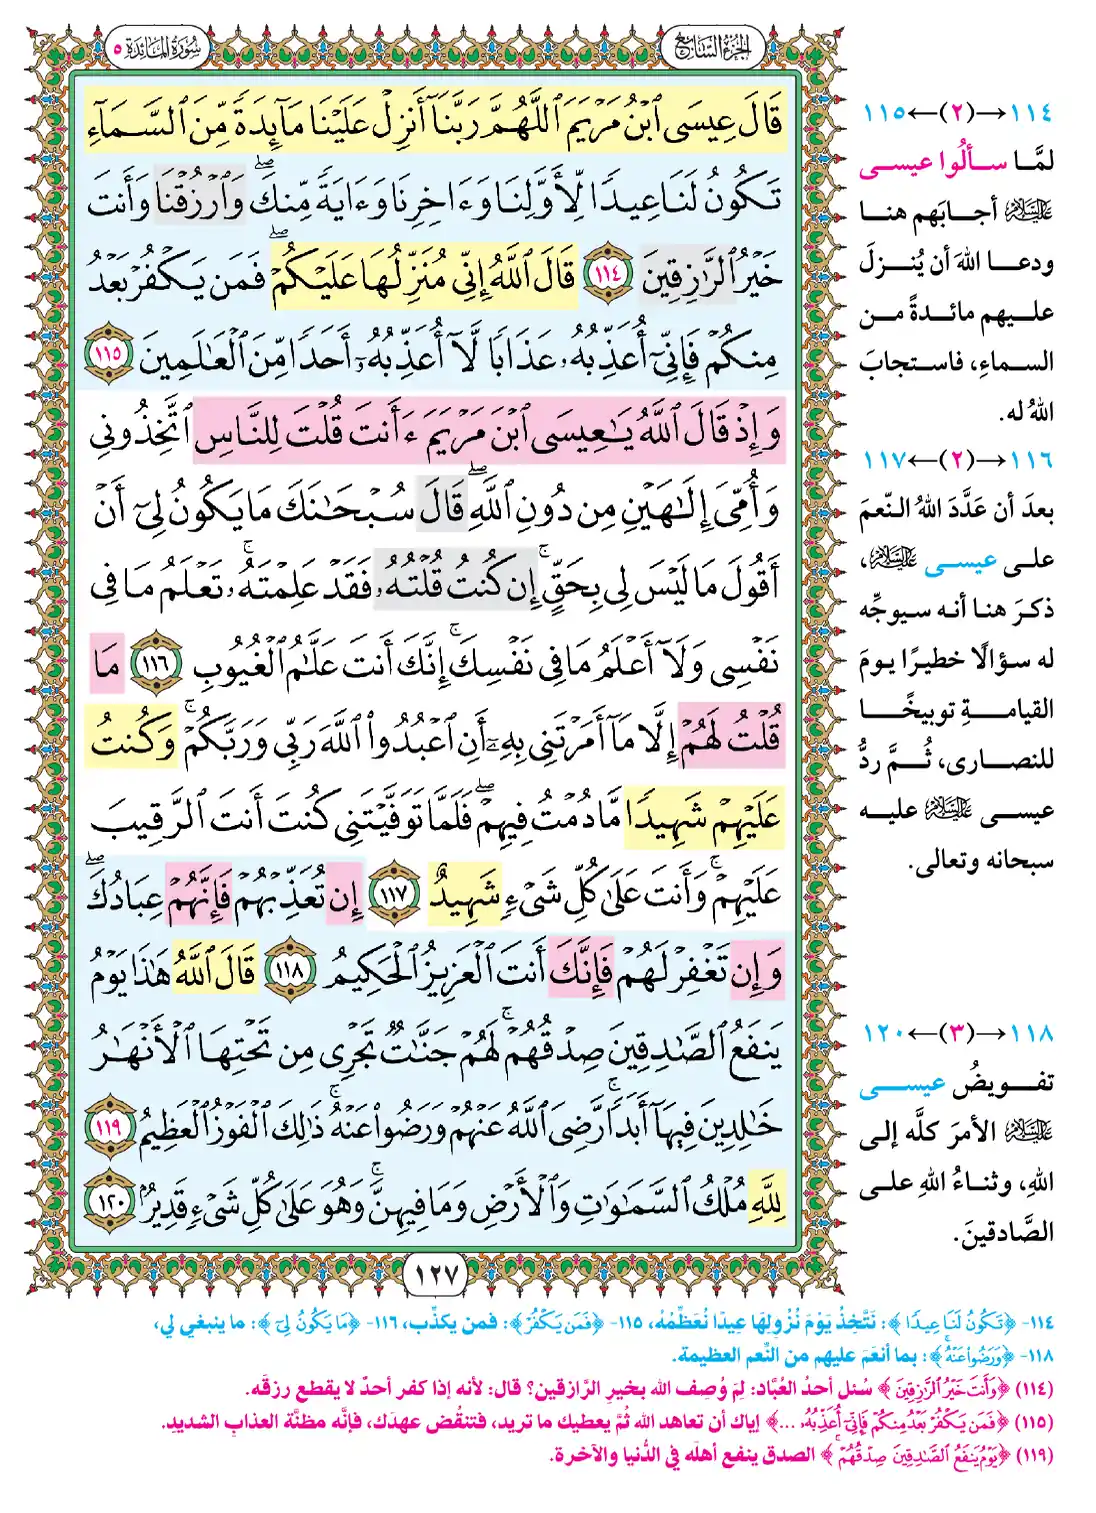 سُورَةُ المَائدَة ٥
الجُزءُ السَّابِع
قَالَ عِيسَى ٱبْنُ مَرْيَمَ ٱللَّهُمَّ رَبَّنَآ أَنزِلْ عَلَيْنَا مَآئِدَةً مِّنَ ٱلسَّمَآءِ
تَكُونُ لَنَا عِيدًا لِّأَوَّلِنَا وَءَاخِرِنَا وَءَايَةً مِّنكَۖ وَٱرْزُقْنَا وَأَنتَ
خَيْرُ ٱلرَّٰزِقِينَ ١١٤ قَالَ ٱللَّهُ إِنِّى مُنَزِّلُهَا عَلَيْكُمْۖ فَمَن يَكْفُرْ بَعْدُ
مِنكُمْ فَإِنِّىٓ أُعَذِّبُهُۥ عَذَابًا لَّآ أُعَذِّبُهُۥٓ أَحَدًا مِّنَ ٱلْعَٰلَمِينَ ١١٥
وَإِذْ قَالَ ٱللَّهُ يَٰعِيسَى ٱبْنَ مَرْيَمَ ءَأَنتَ قُلْتَ لِلنَّاسِ ٱتَّخِذُونِى
وَأُمِّىَ إِلَٰهَيْنِ مِن دُونِ ٱللَّهِۖ قَالَ سُبْحَٰنَكَ مَا يَكُونُ لِىٓ أَنْ
أَقُولَ مَا لَيْسَ لِى بِحَقٍّۚ إِن كُنتُ قُلْتُهُۥ فَقَدْ عَلِمْتَهُۥۚ تَعْلَمُ مَا فِى
نَفْسِى وَلَآ أَعْلَمُ مَا فِى نَفْسِكَۚ إِنَّكَ أَنتَ عَلَّٰمُ ٱلْغُيُوبِ ١١٦ مَا
قُلْتُ لَهُمْ إِلَّا مَآ أَمَرْتَنِى بِهِۦٓ أَنِ ٱعْبُدُوا۟ ٱللَّهَ رَبِّى وَرَبَّكُمْۚ وَكُنتُ
عَلَيْهِمْ شَهِيدًا مَّا دُمْتُ فِيهِمْۖ فَلَمَّا تَوَفَّيْتَنِى كُنتَ أَنتَ ٱلرَّقِيبَ
عَلَيْهِمْۚ وَأَنتَ عَلَىٰ كُلِّ شَىْءٍ شَهِيدٌ ١١٧ إِن تُعَذِّبْهُمْ فَإِنَّهُمْ عِبَادُكَۖ
وَإِن تَغْفِرْ لَهُمْ فَإِنَّكَ أَنتَ ٱلْعَزِيزُ ٱلْحَكِيمُ ١١٨ قَالَ ٱللَّهُ هَٰذَا يَوْمُ
يَنفَعُ ٱلصَّٰدِقِينَ صِدْقُهُمْۚ لَهُمْ جَنَّٰتٌ تَجْرِى مِن تَحْتِهَا ٱلْأَنْهَٰرُ
خَٰلِدِينَ فِيهَآ أَبَدًاۚ رَّضِىَ ٱللَّهُ عَنْهُمْ وَرَضُوا۟ عَنْهُۚ ذَٰلِكَ ٱلْفَوْزُ ٱلْعَظِيمُ ١١٩
لِلَّهِ مُلْكُ ٱلسَّمَٰوَٰتِ وَٱلْأَرْضِ وَمَا فِيهِنَّۚ وَهُوَ عَلَىٰ كُلِّ شَىْءٍ قَدِيرٌۢ ١٢٠
١٢٧
١١٤→(٢)←١١٥
لمَّا سألُوا عيسى
عَلَيْهِ السَّلَام أجابَهم هنا
ودعا اللهَ أن يُنزلَ
عليهم مائدةً من
السماءِ، فاستجابَ
اللهُ له.
١١٦→(٢)←١١٧
بعدَ أن عَدَّدَ اللهُ النّعمَ
على عيسى عَلَيْهِ السَّلَام،
ذكرَ هنا أنه سيوجِّه
له سؤالًا خطيرًا يومَ
القيامةِ توبيخًا
للنصارى، ثُمَّ ردُّ
عيسى عَلَيْهِ السَّلَام عليه
سبحانه وتعالى.
١١٨→(٣)←١٢٠
تفويضُ عيسى
عَلَيْهِ السَّلَام الأمرَ كلَّه إلى
اللهِ، وثناءُ اللهِ على
الصَّادقينَ.
١١٤- ﴿تَكُونُ لَنَا عِيدًا﴾: نَتَّخِذُ يَوْمَ نُزُولِهَا عِيدًا نُعَظِّمُهُ، ١١٥- ﴿فَمَن يَكْفُرْ﴾: فمن يكذِّب، ١١٦- ﴿مَا يَكُونُ لِىٓ﴾: ما ينبغي لي،
١١٨- ﴿وَرَضُوا۟ عَنْهُۚ﴾: بما أنعَمَ عليهم من النِّعم العظيمة.
(١١٤) ﴿وَأَنتَ خَيْرُ ٱلرَّٰزِقِينَ﴾ سُئل أحدُ العُبَّاد: لِمَ وُصِف الله بخيرِ الرَّازقين؟ قال: لأنه إذا كفر أحدٌ لا يقطع رزقَه.
(١١٥) ﴿فَمَن يَكْفُرْ بَعْدُ مِنكُمْ فَإِنِّىٓ أُعَذِّبُهُۥ ...﴾ إياك أن تعاهد الله ثُمَّ يعطيك ما تريد، فتنقُض عهدَك، فإنَّه مظنَّة العذابِ الشديدِ.
(١١٩) ﴿يَوْمُ يَنفَعُ ٱلصَّٰدِقِينَ صِدْقُهُمْۚ﴾ الصدق ينفع أهلَه في الدُّنيا والآخرة.